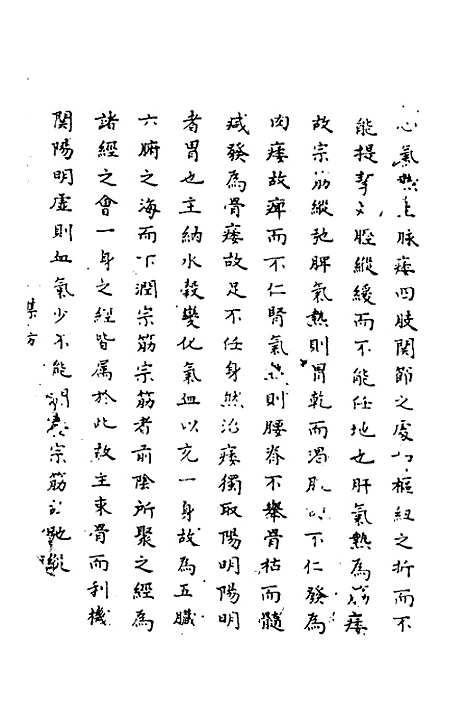 心氣熱生脉痿四肢関節之處如樞紐之折而不
能提挈又脛縱緩而不能任地也肝氣熱為筋痿
故宗筋縱弛脾氣熱則胃乾而渴肌肉不仁發為
肉痿故痺而不仁腎氣熱則腰脊不舉骨枯而髓
减發為骨痿故足不任身然治痿獨取陽明陽明
者胃也主納水穀變化氣血以充一身故為五臟
六腑之海而下潤宗筋宗筋者前陰所聚之經為
諸經之會一身之經皆属於此故主束骨而利機
関陽明虛則血氣少不能潤養宗筋故弛縱
集方